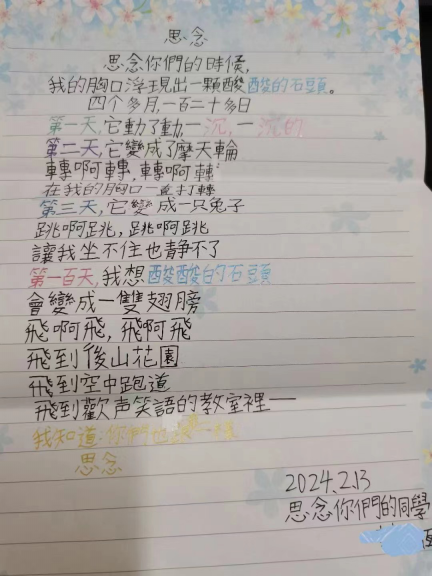 思念
思念你們的時候,
我的胸口浮現出一顆酸酸的石頭。
四个多月,一百二十多日
第一天,它動了動,一沉,一沉的
第二天,它變成了摩天輪
轉啊轉,轉啊轉
在我的胸口一直打轉
第三天,它變成一只兔子
跳啊跳,跳啊跳
讓我坐不住也靜不了
第一百天,我想酸酸的石頭
會變成一雙翅膀
飛啊飛,飛啊飛
飛到後山花園
飛到空中跑道
飛到歡声笑語的教室裡——
我知道,你們也一樣
思念
2024.2.13
思念你們的同學